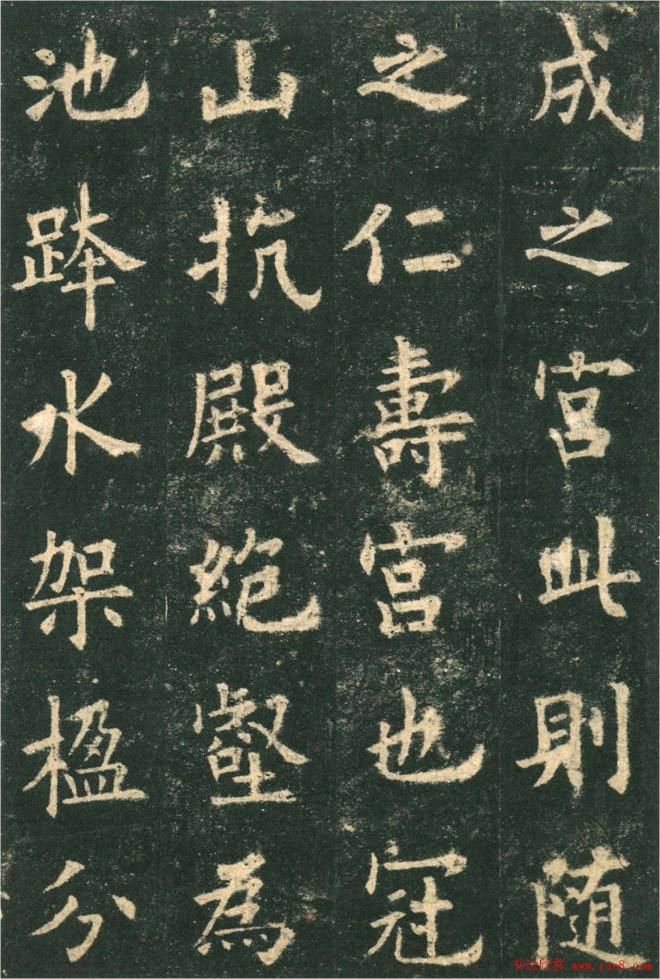 成之宮此則隨
之仁壽宮也冠
山抗殿絶壑為
池跨水架楹分
www.yac8.com